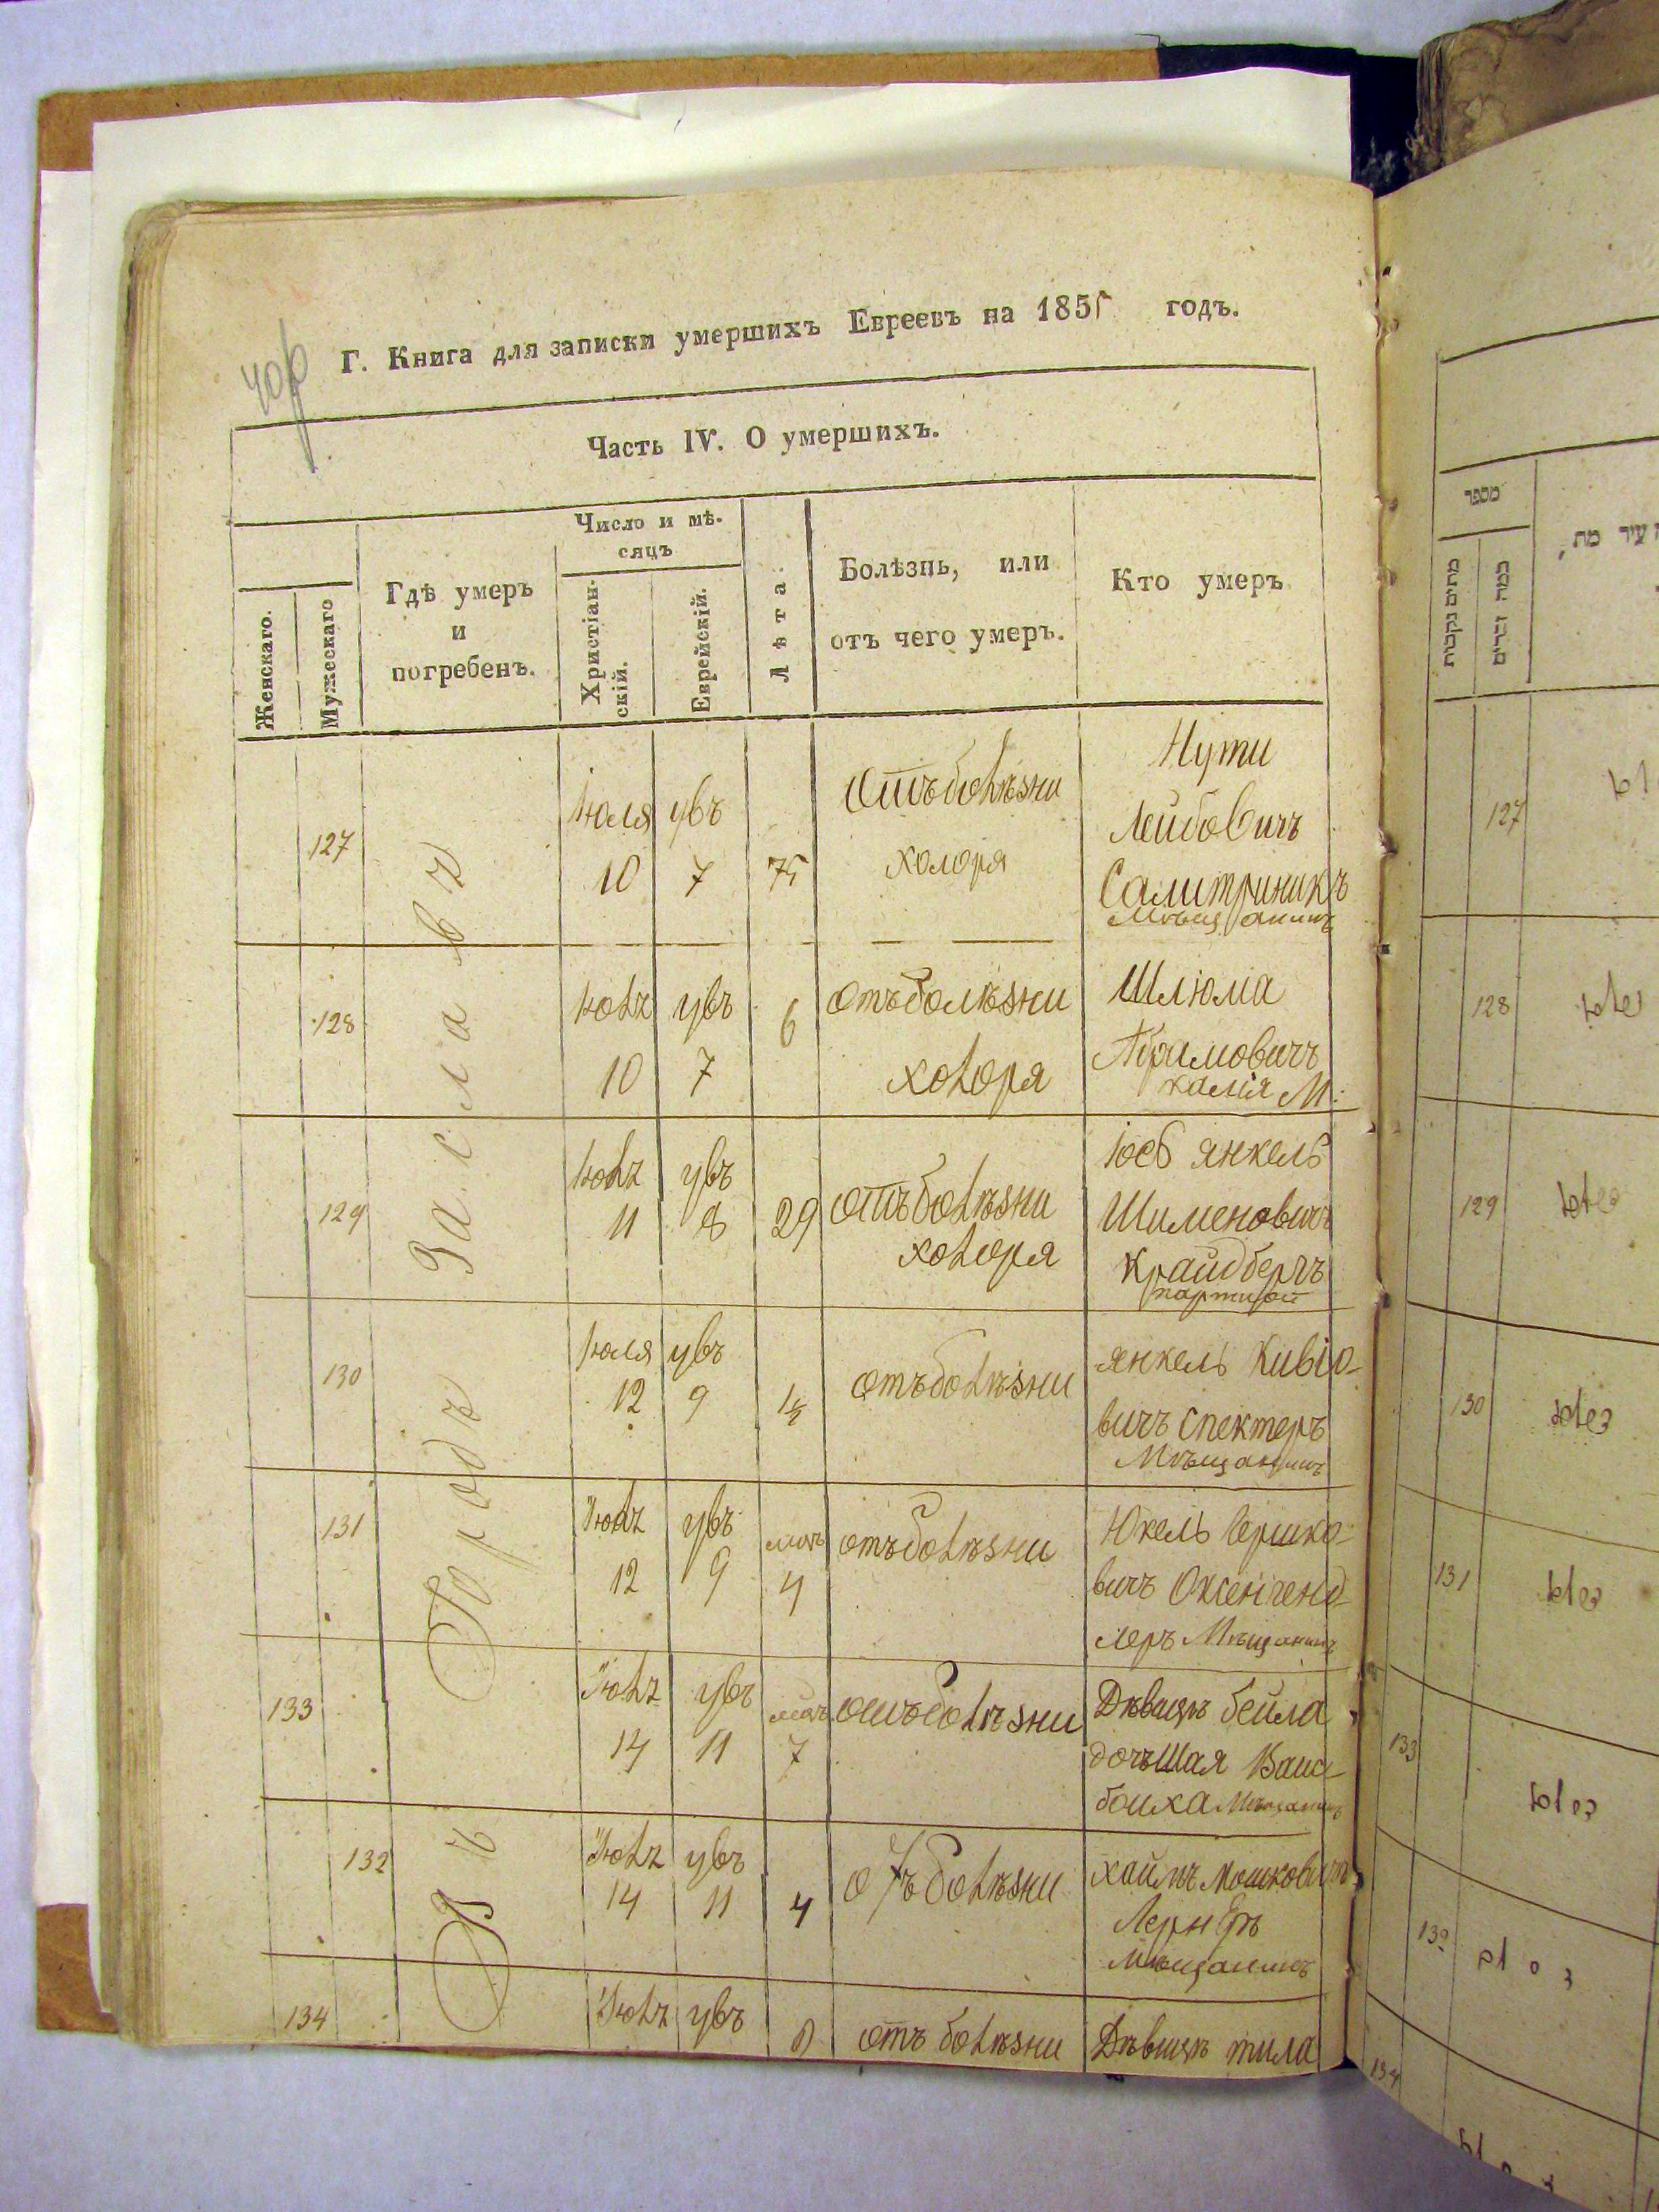 Г. Книга для записки умершихъ Евреевъ на 1855 годъ.
Часть IV. О умершихъ.
Женскаго.
Мужескаго
Гдѣ умеръ
и
погребенъ.
Число и мѣ-
сяцъ
Христіан-
скій.
Еврейскій.
Лѣта.
Болѣзнь, или
отъ чего умеръ.
Кто умеръ
Въ Городѣ Заславѣ
127
Іюля
10
увъ
7
75
Отъ болѣзни
холоря
Нути
Лейбовичъ
Салитриникъ
Мѣщанинъ
128
Іюлъ
10
увъ
7
6
отъ болѣзни
холоря
Шлюма
Абрамовичъ
М.
129
Іюлъ
11
увъ
8
29
отъ болѣзни
холоря
Іосб янкель
Шименовичъ
Крайдберъ
130
Іюля
12
увъ
9
отъ болѣзни
янкель Кивіо-
вичъ Спектеръ
Мѣщанинъ
131
Іюлъ
12
увъ
9
4
отъ болѣзни
Юкель Гершко-
вичъ Оксенгенд-
леръ Мѣщанинъ
133
Іюлъ
14
увъ
11
7
отъ болѣзни
Дѣвицѣ бейла
дочь Шая Ваис-
боиха
132
Іюлъ
14
увъ
11
4
отъ болѣзни
хаимъ Мошковичъ
Лернеръ
Мѣщанинъ
134
Іюлъ
увъ
отъ болѣзни
Дѣвицѣ тила
מספר
מתים נקבות
כמה זכרים
עיר מת,
127
128
129
130
131
133
132
134